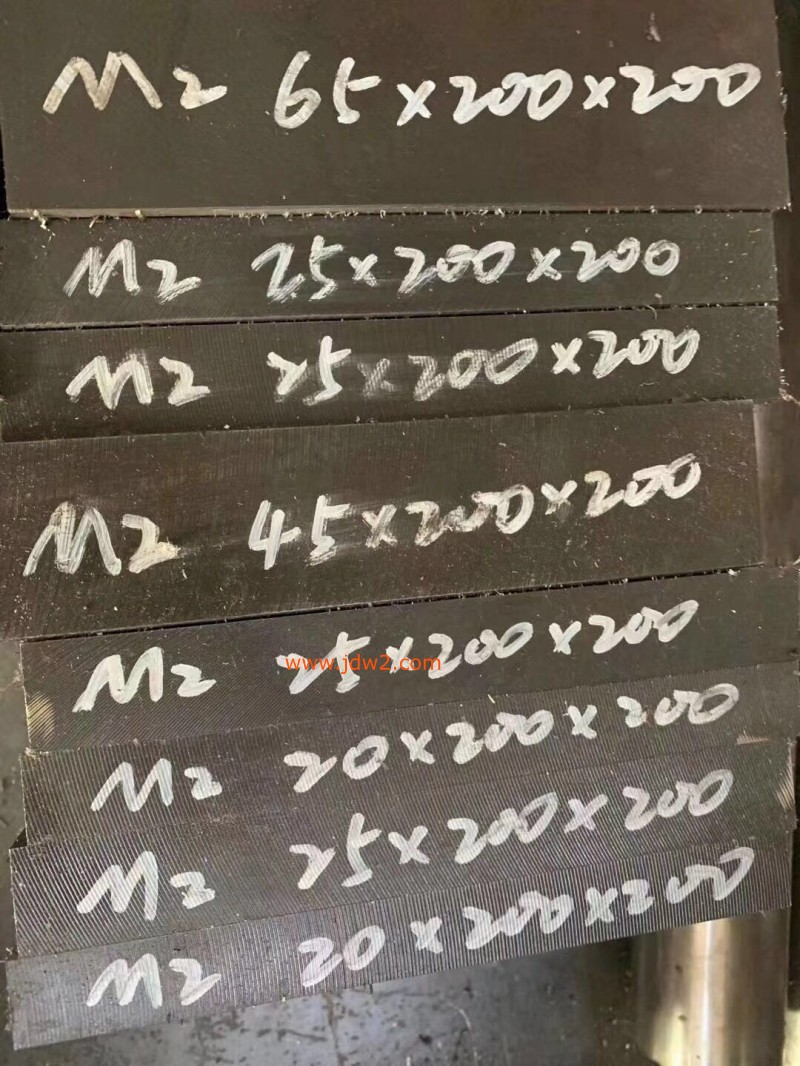 M2 65×200×200
M2 25×200×200
M2 25×200×200
M2 45×200×200
M2 25×200×200
www.jdw2.com
M2 20×200×200
M2 25×200×200
M2 20×200×200